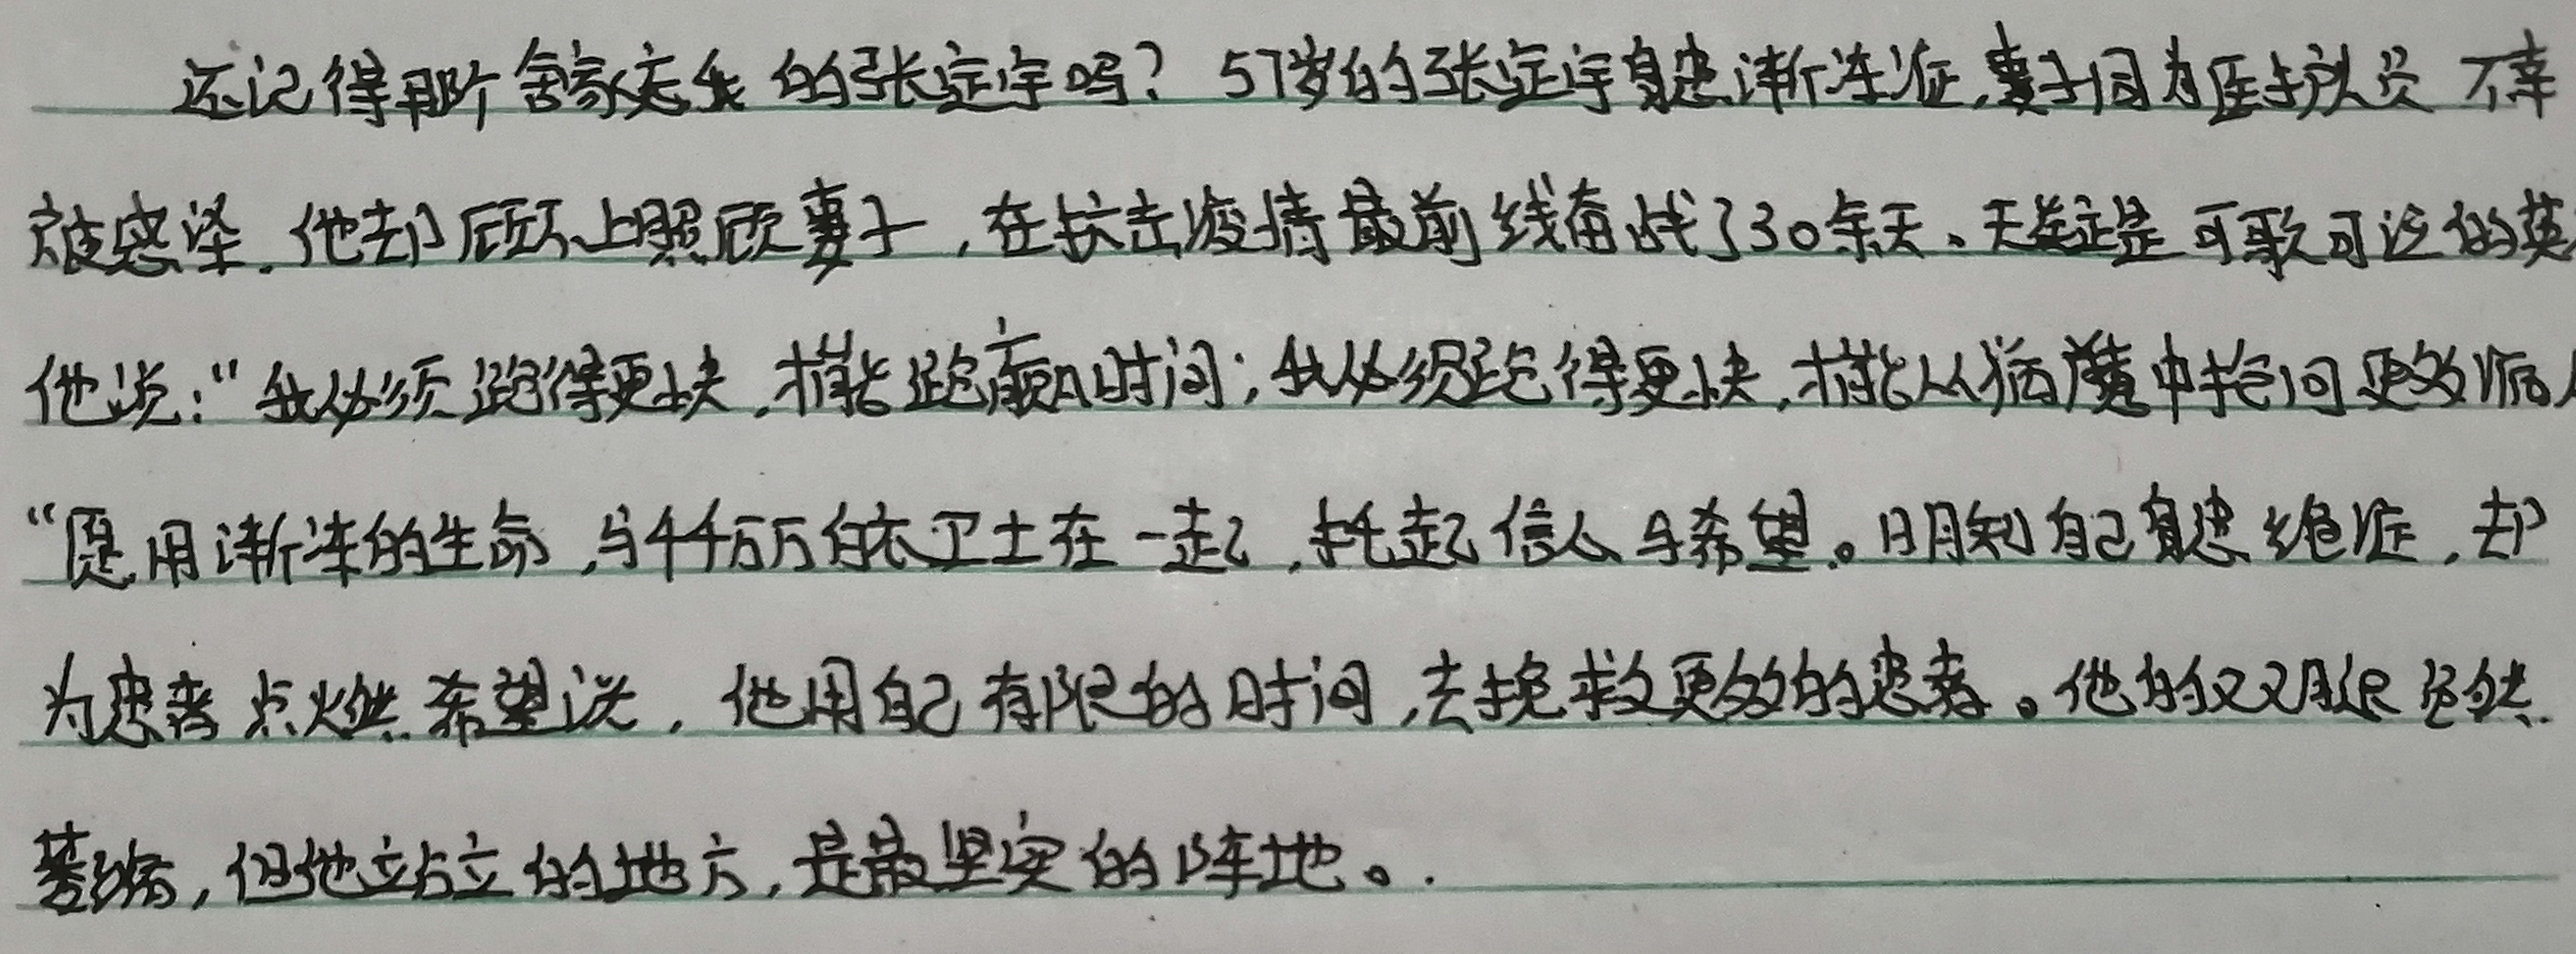 还记得那个舍家忘我的张定宇吗？57岁的张定宇身患渐冻症,妻子因为医护人员不幸
被感染.他却顾不上照顾妻子,在抗击疫情最前线奋战了30余天、无疑是可歌可泣的英
他说:"我必须跑得更快,才能跑赢时间;我必须跑得更快,才能从病魔中抢回更多病人
"愿用渐冻的生命,与千千万万白衣卫士在一起,托起信心与希望。明知自己身患绝症,却
为患者点燃希望说,他用自己有限的时间,去挽救更多的患者。他的双腿已经
萎缩,但他站立的地方,是最坚实的阵地。.